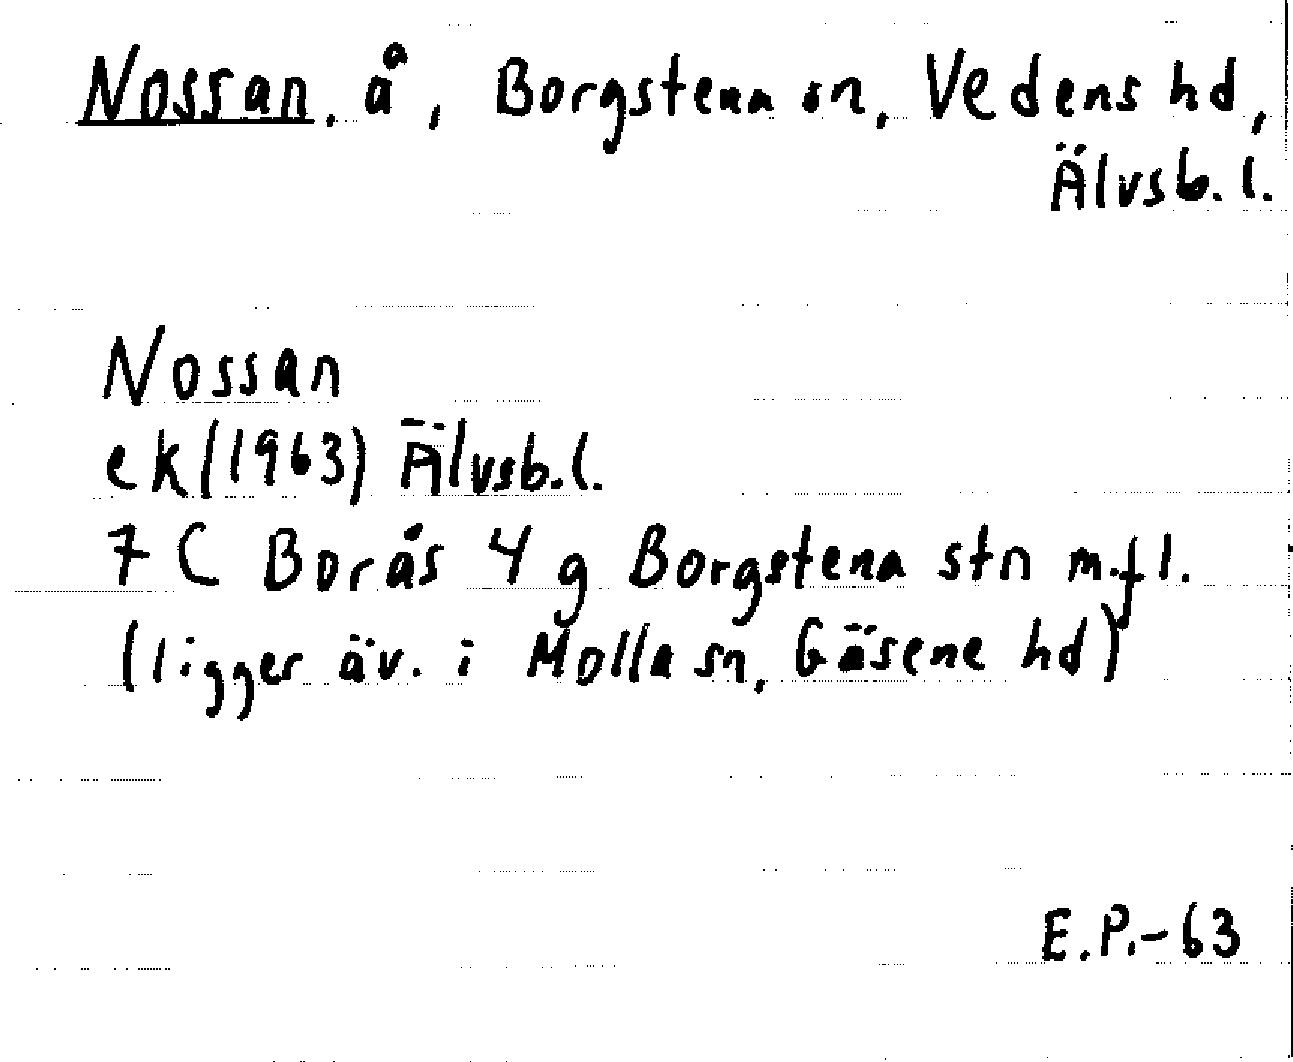 Nossan, å, Borgstena sn, Vedens hd,
Älvsb. l.
Nossan
ek (1963) Älvsb. l.
7 C Borås 4 g Borgstena stn m.fl.
(ligger äv. i Molla sn, Gäsene hd)
E.P.-63